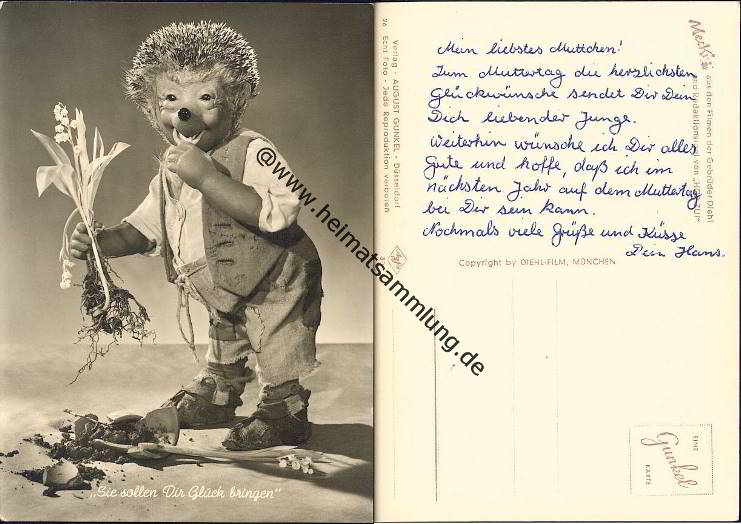 „Sie sollen Dir Glück bringen"
Verlag - AUGUST GUNKEL - Düsseldorf
26 Echt Foto - Jede Reproduktion verboten
Mein liebstes Muttchen!
Zum Muttertag die herzlichsten
Glückwünsche sendet Dir Dein
Dich liebender Junge.
Weiterhin wünsche ich Dir alles
Gute und hoffe, daß ich im
nächsten Jahr auf dem Muttertag
bei Dir sein kann.
Nochmals viele Grüße und Küsse
Dein Hans.
Mecki
aus den Filmen der Gebrüder Diehl
und Redaktions von „HÖR ZU"
Copyright by DIEHL-FILM, MÜNCHEN
EINE
Gunkel
KARTE
@www.heimatsammlung.de